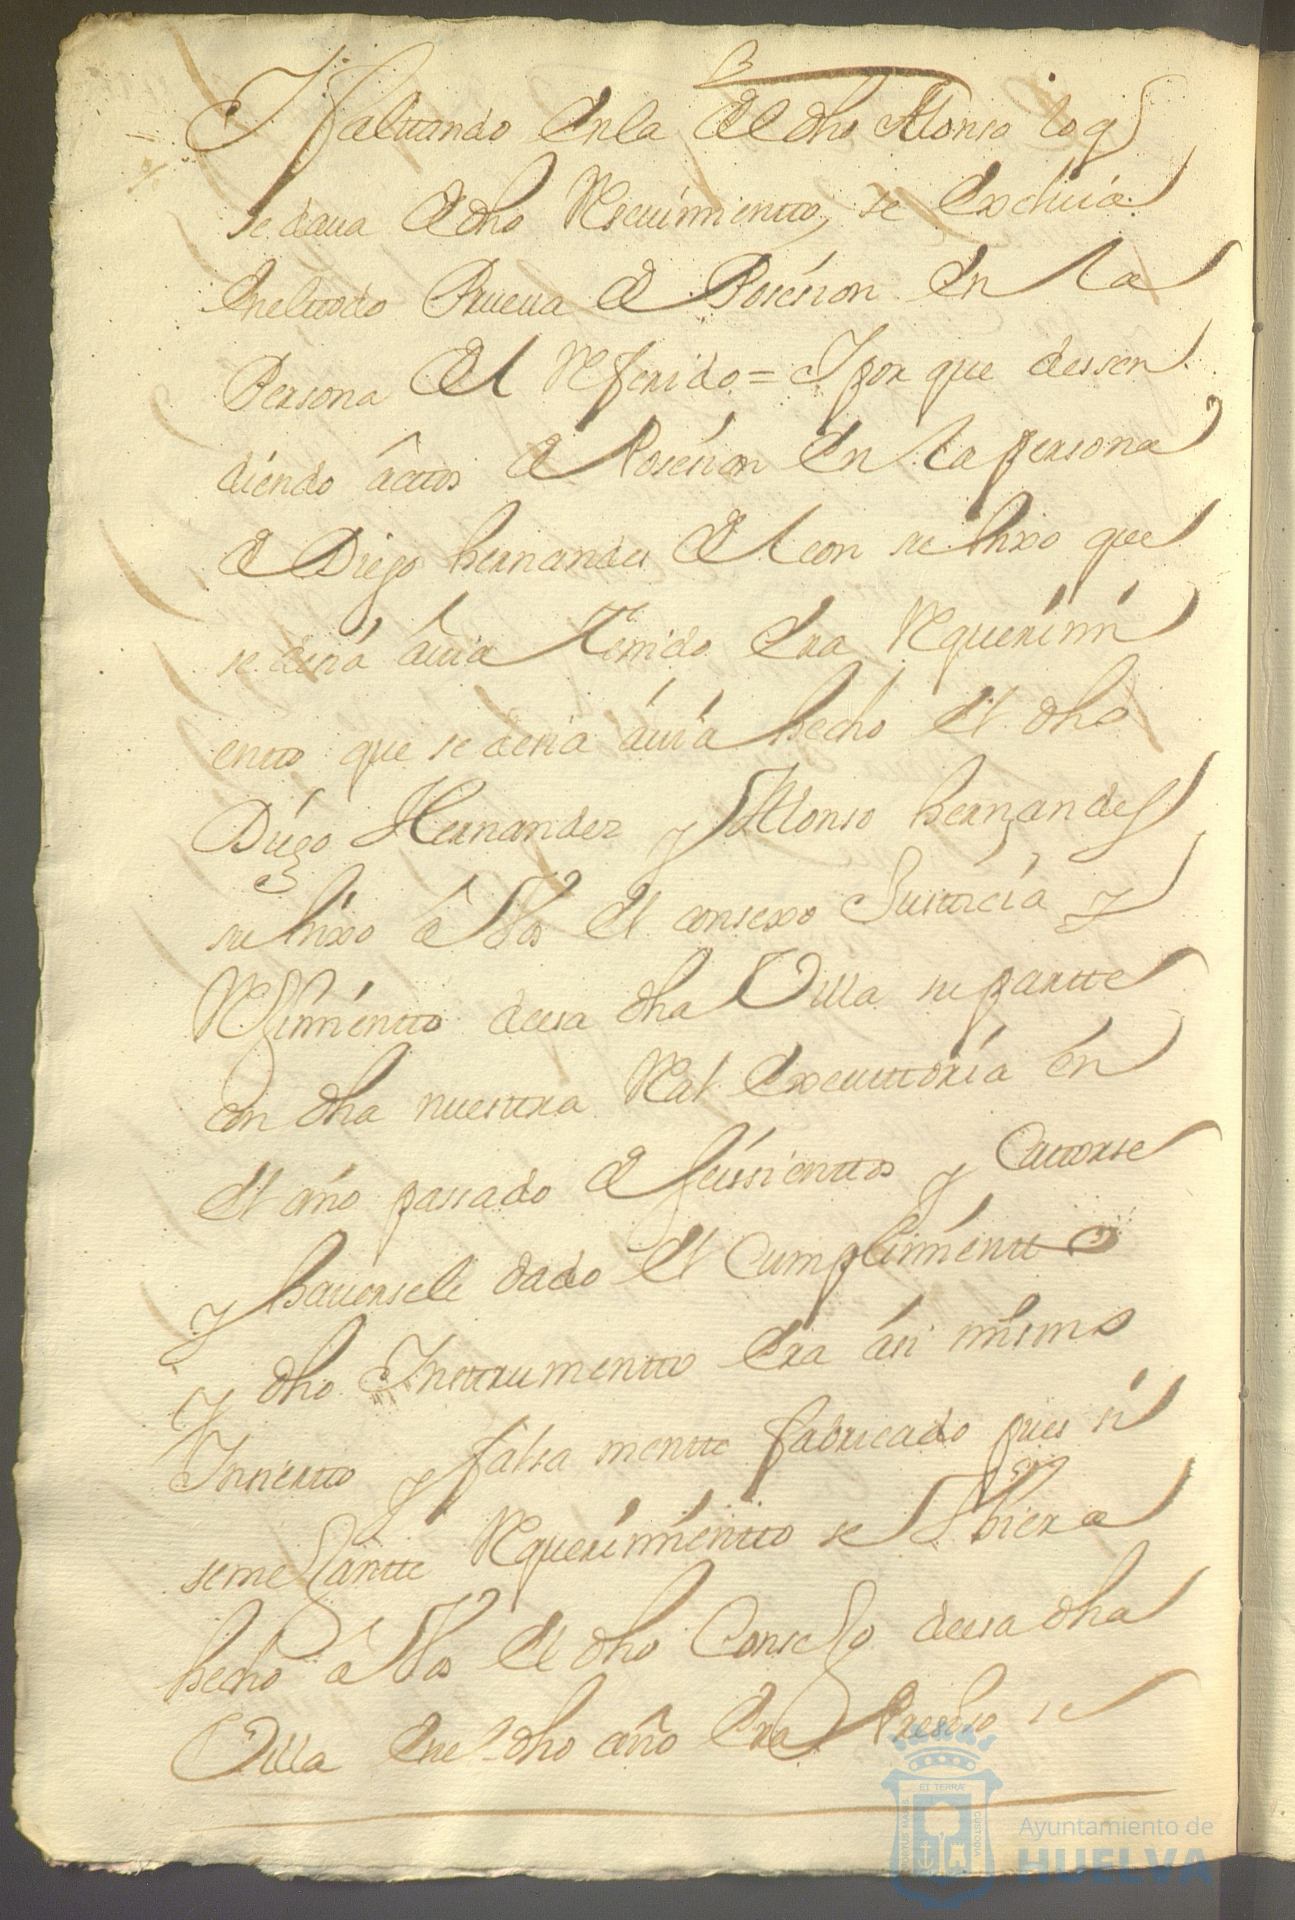 Y faltando en la de el dho Alonso lo q
se daua de dho Reciuimientto, se excluia
en el ttodo Prueua de Posesion en la
Persona de el Referido = Y por que dessen
diendo ácttos de Posesion en la persona
de Diego hernandez de Leon su hixo que
se desia áuia ttenido era Requerimi
entto que se desia áuia hecho el dho
Diego Hernandez y Alonso hernandes
su hixo á Vos el consexo Justticia y
Reximientto de esa dha Villa su partte
con dha nuesttra Real executtoria en
el año passado de seissienttos y Cattorse
y hauersele dado el Cumplimientto
y dho Insttrumentto era ási mismo
Insiertto y falsamentte fabricado pues si
semejantte Requerimientto se hubiera
hecho á Vos el dho Consejo de esa dha
Villa en el dho año era Preciso se
ET TERRÆ
PORTUS MARIS
CUSTODIA
Ayuntamiento de
HUELVA